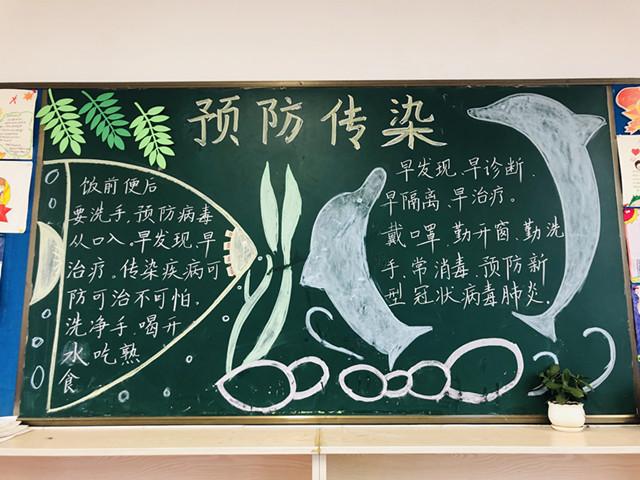 预防传染
饭前便后
要洗手,预防病毒
从口入。早发现,早
治疗,传染疾病可
防可治不可怕。
洗净手,喝开
水吃熟
食
早发现、早诊断、
早隔离、早治疗。
戴口罩、勤开窗、勤洗
手、常消毒、预防新
型冠状病毒肺炎。